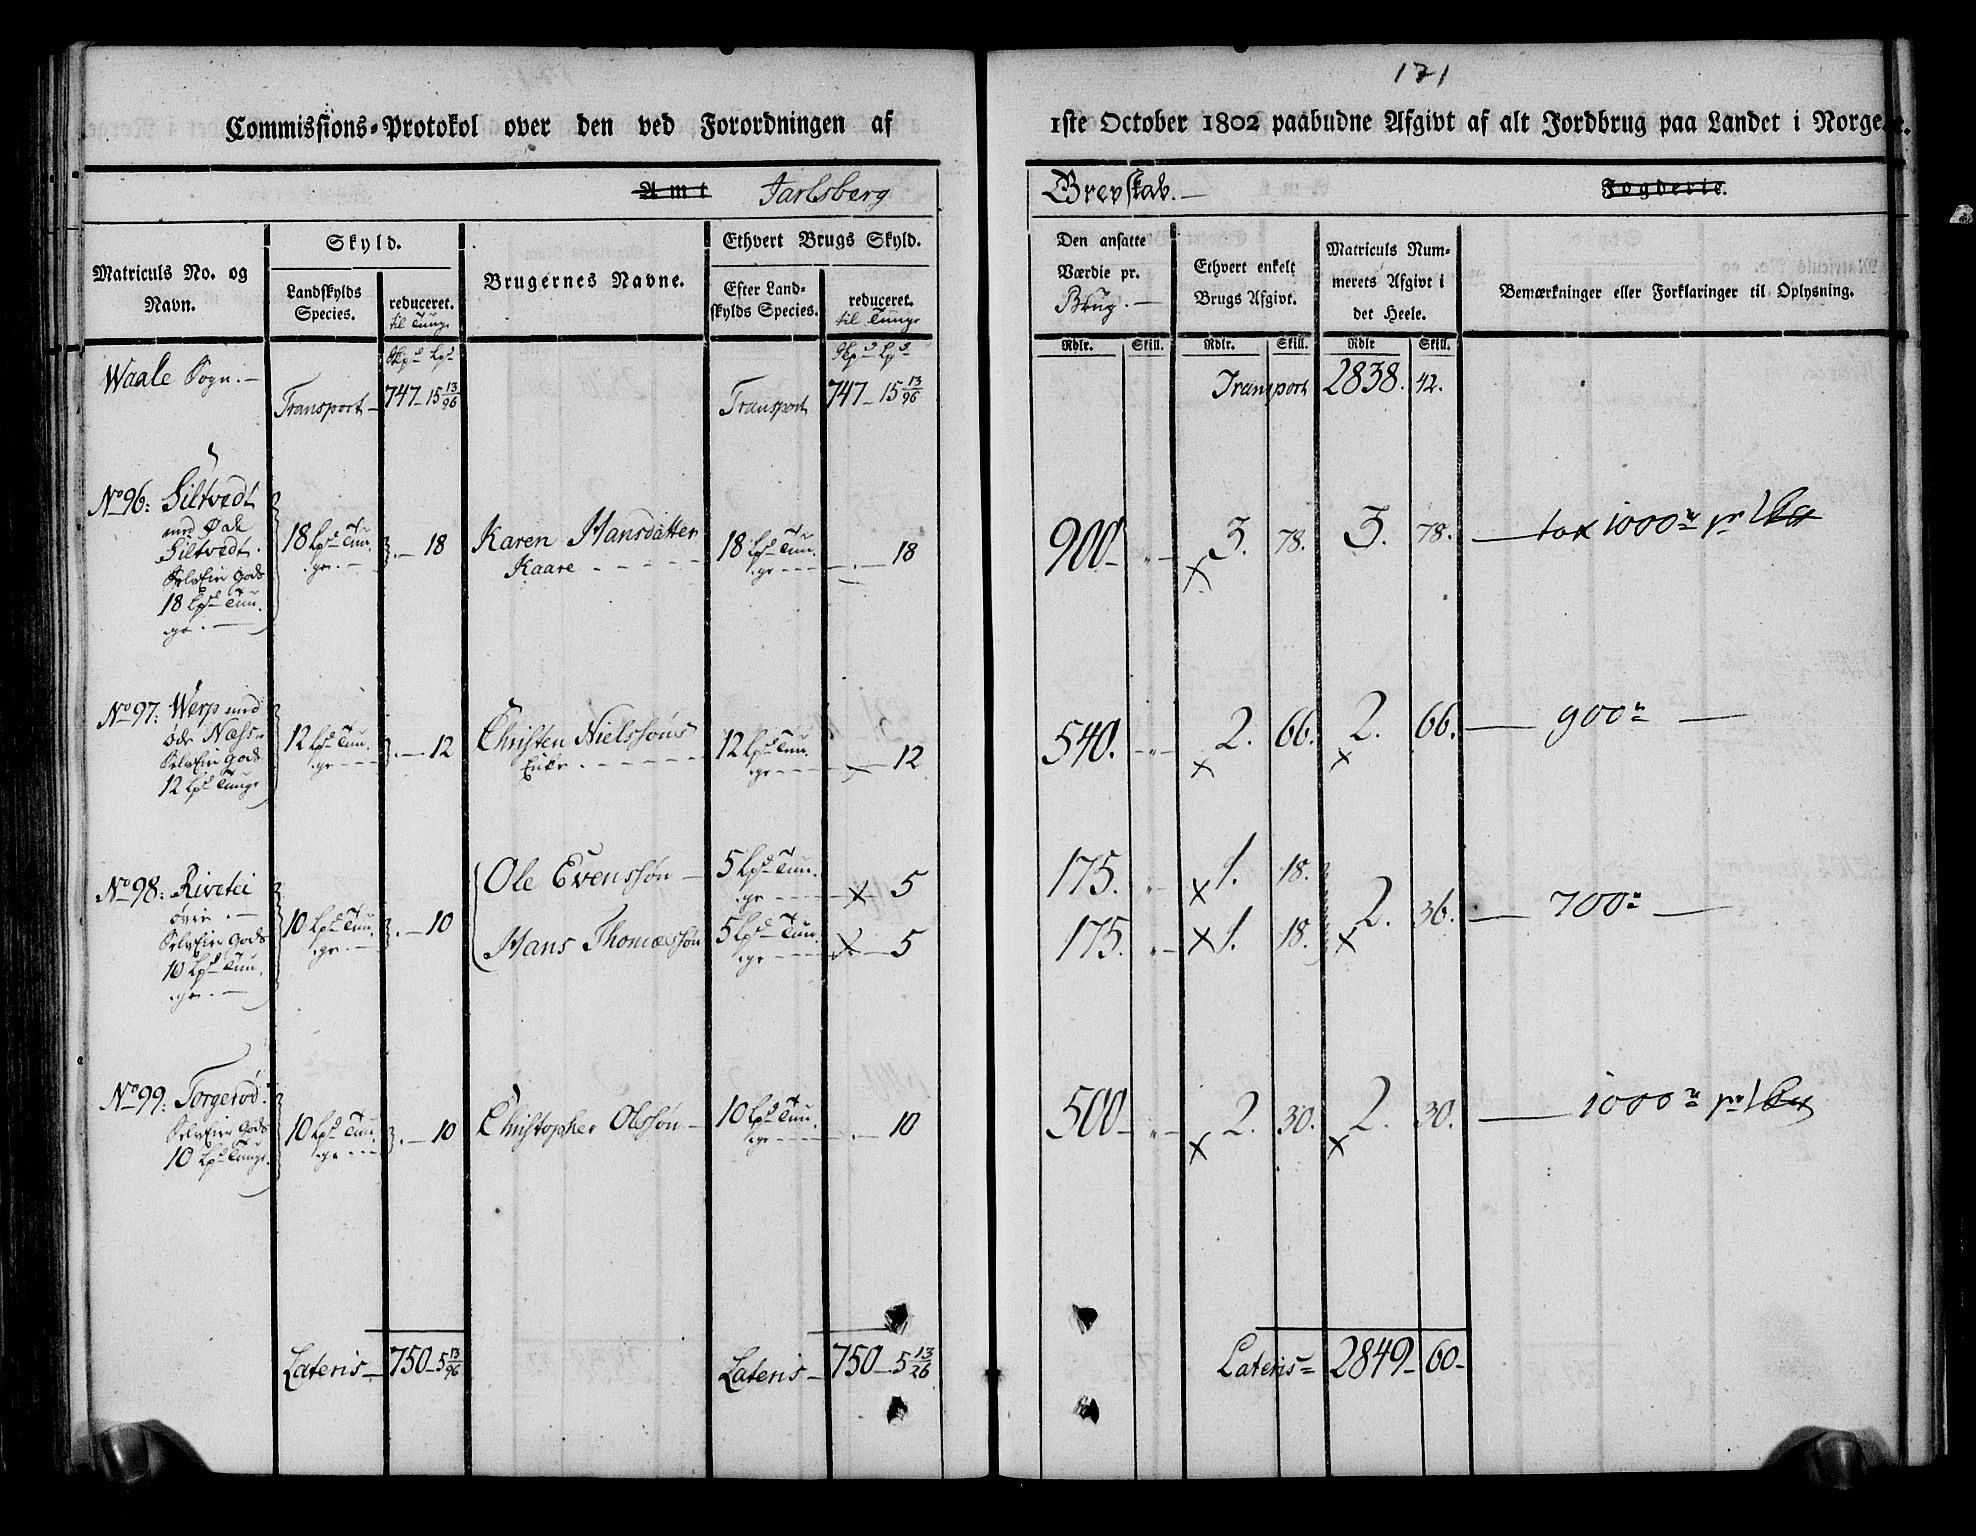 171
Commissions-Protokol over den ved Forordningen af 1ste October 1802 paabudne Afgivt af alt Jordbrug paa Landet i Norge.
Amt Jarlsberg Grevskab.— Fogderie.
Matriculs No. og Navn.
Skyld.
Landskylds Species.
reduceret.
til Tunge
Brugernes Navne.
Ethvert Brugs Skyld.
Efter Landskylds Species.
reduceret.
til Tunge
Den ansatte Værdie pr. Brug.—
Ethvert enkelt Brugs Afgivt.
Matriculs Nummerets Afgivt i det Heele.
Bemærkninger eller Forklaringer til Oplysning.
Rdlr. Skill. Rdlr. Skill. Rdlr Skill.
Waale Sogn.—
Transport— 747— 15 13/96 Transport 747— 15 13/96 Transport 2838. 42.
No 96: Siltvedt
med Øde
Siltvedt.
SelvEier Gods
18 Lpd Tun-
ge.—
18 Lpd Tun-
ge.—
18
Karen Hansdatter
Kaare
18 Lpd Tun-
ge
18
900— „— 3. 78. 3. 78. — tax 1000 rd pr
No 97: Werp med
øde Næss
SelvEier Gods
12 Lpd Tunge
12 Lpd Tun-
ge
12
Christen Nielssøns
Enke
12 Lpd Tun-
ge
12
540. „— 2. 66. 2. 66. — 900 —
No 98: Rivetei
øvre.—
SelvEier Gods
10 Lpd Tun-
ge.—
10 Lpd Tun-
ge.—
10
Ole Evenssøn— 5 Lpd Tun-
ge 5
175. „ 1. 18.
Hans Thomæssøn 5 Lpd Tun-
ge 5
175. „— 1. 18. 2. 36. — 700 —
No 99: Torgerød.
SelvEier Gods
10 Lpd Tunge.
10 Lpd Tun-
ge
10
Christopher Olssøn— 10 Lpd Tun-
ge
10
500— „— 2. 30. 2. 30. — 1000 rd pr
Lateris— 750— 5 13/96 Lateris— 750— 5 13/26 Lateris= 2849— 60—